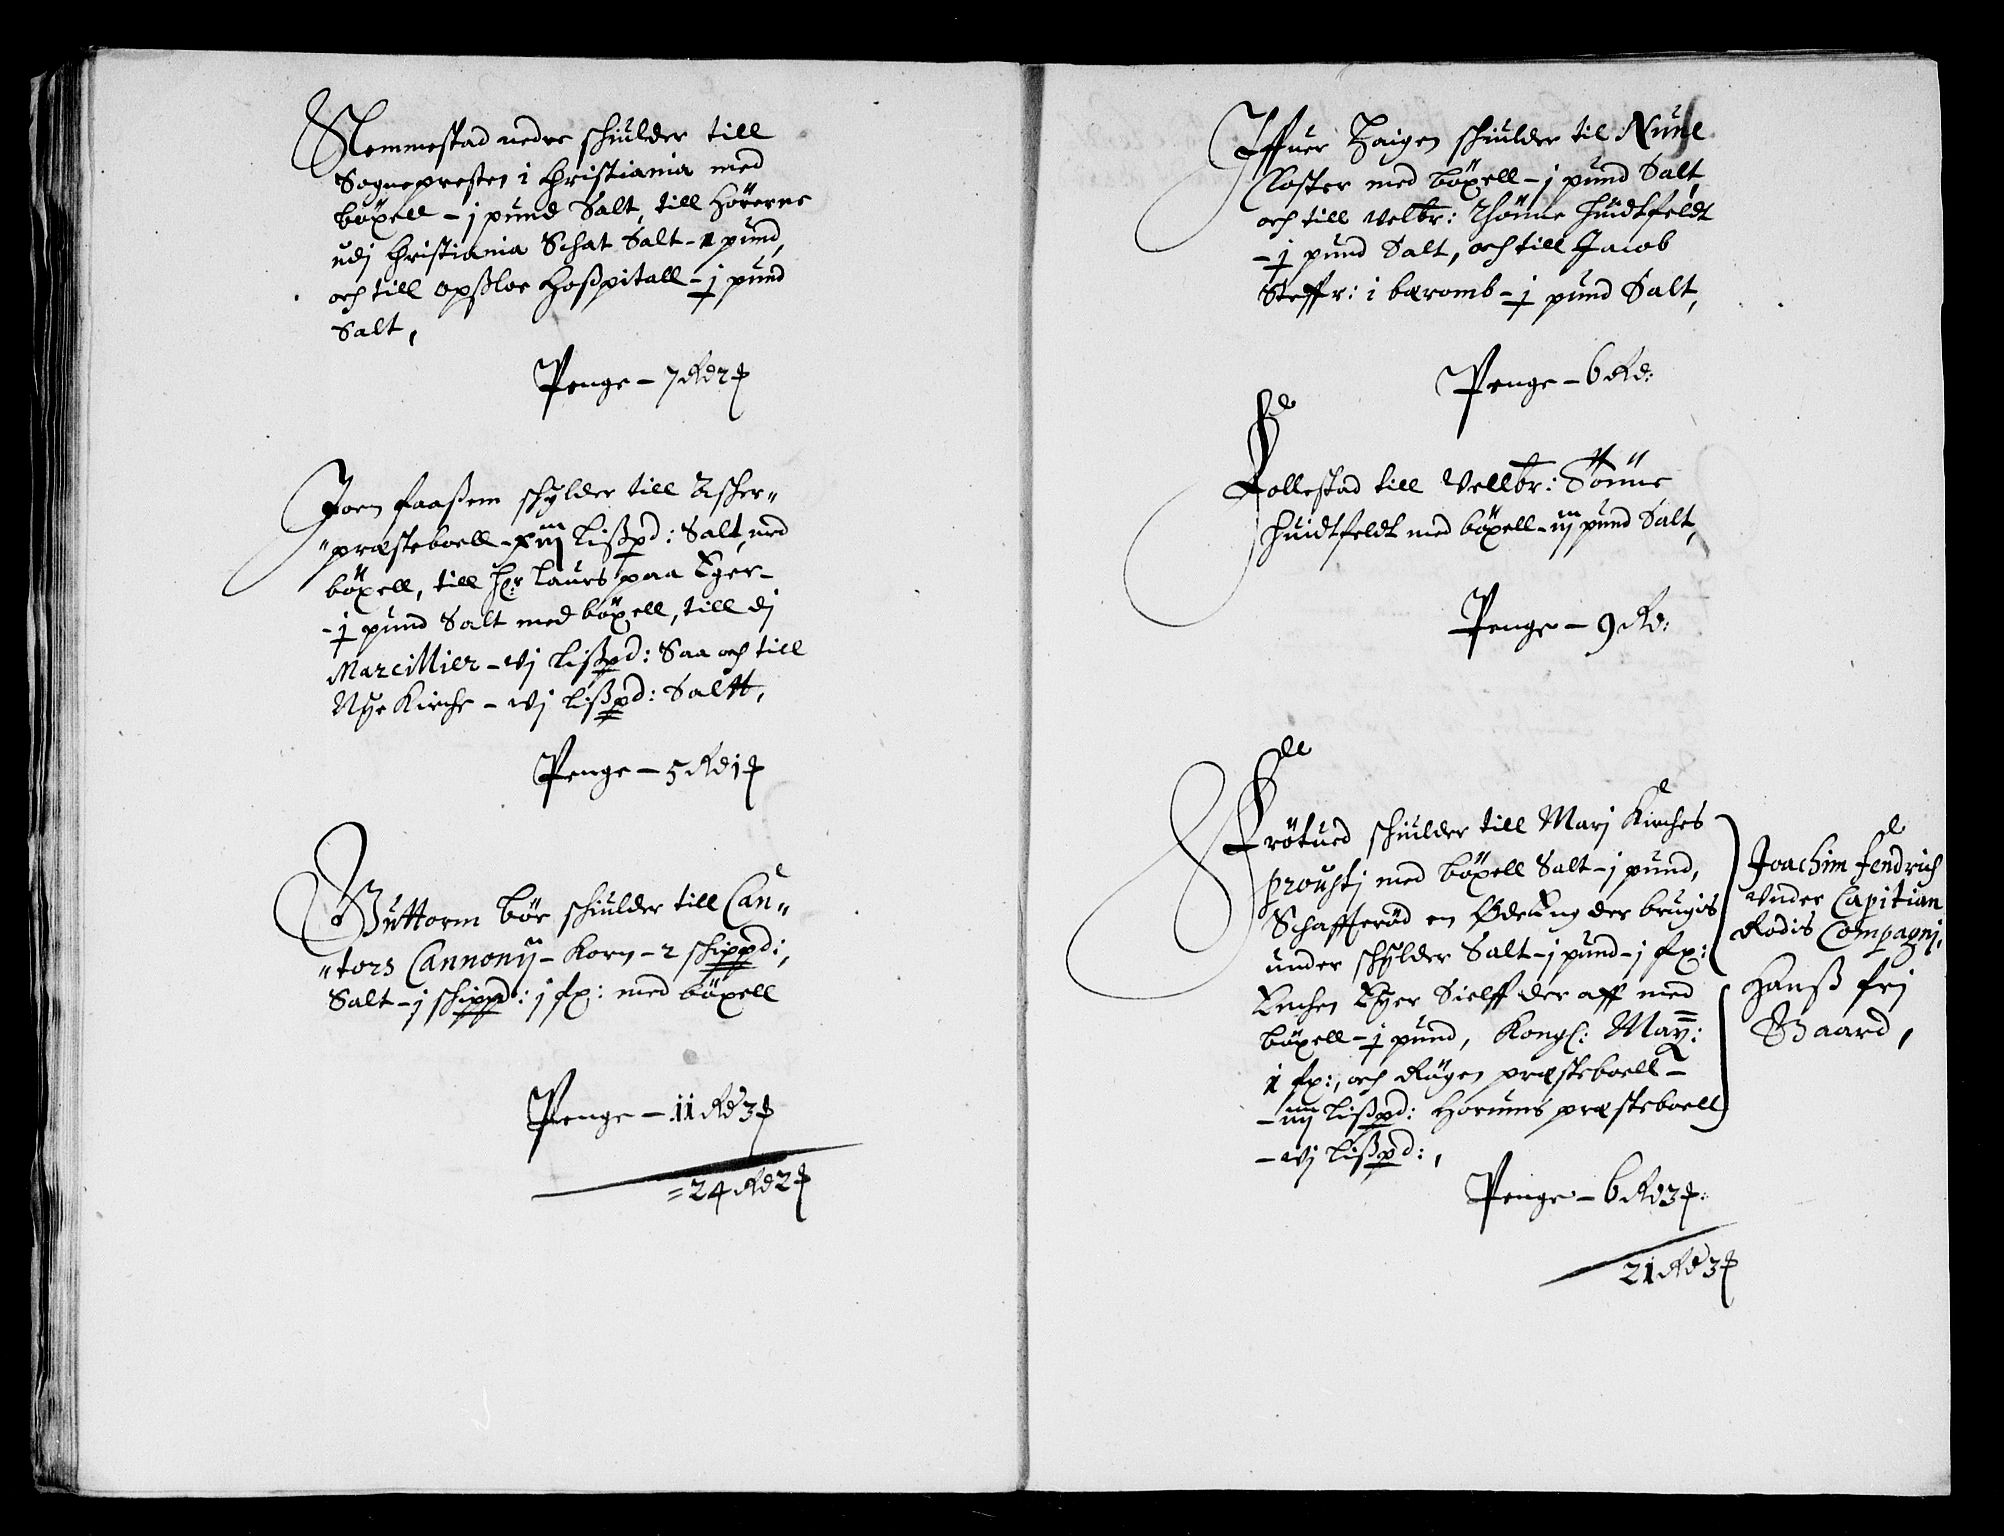 Slemmestad nedre schiulder till
Sognepresten i Christiania med
böxell - j pund Salt, till Hörerne
udj Christiania Schat Salt - 1 pund,
och till opsloe Hosspitall - j pund
Salt,
Penge - 7 Rd 2
Joen faassem schylder till Ascher"
"præsteboell - xiij Lisspd: Salt, med
böxell, till Hr: Laurs paa Eger -
- j pund Salt med böxell, till dj
Marcillier - vj Lisspd: Saa och till
Nye Kirche - vj Lisspd: Saltt,
Penge - 5 Rd 1
Guttorm böe schiulder till Can"
"tors Cannonij - Korn - 2 schippd:,
Salt - j schippd: j fx: med böxell
Penge - 11 Rd 3
= 24 Rd 2
Iffuer Haigen schiulder til Nune
Closter med böxell - j pund Salt,
och till velbr: Thönne Huidtfeldt
- j pund Salt, och till Jacob
Steffr: i bæromb - j pund Salt,
Penge - 6 Rd:
Follestad till Vellbr: Tönne
Huidtfeldt med böxell - iij pund Salt,
Penge - 9 Rd:
Frötued schiulder till Marj Kirches
proustj med böxell Salt - j pund,
Schafferöd en ØdeEng der brugis
under schylder Salt - j pund - j fx:
Enchen Eyer Sielff der aff med
böxell - j pund, Kongl: May:
1 fx:, och Rögen præsteboell -
- iiij Lisspd: Horums præsteboell
- vj Lisspd:,
Joachim fendrich
under Capitian
Rodis Compagnj,
Hanss frj
Gaard,
Penge - 6 Rd 3
21 Rd 3